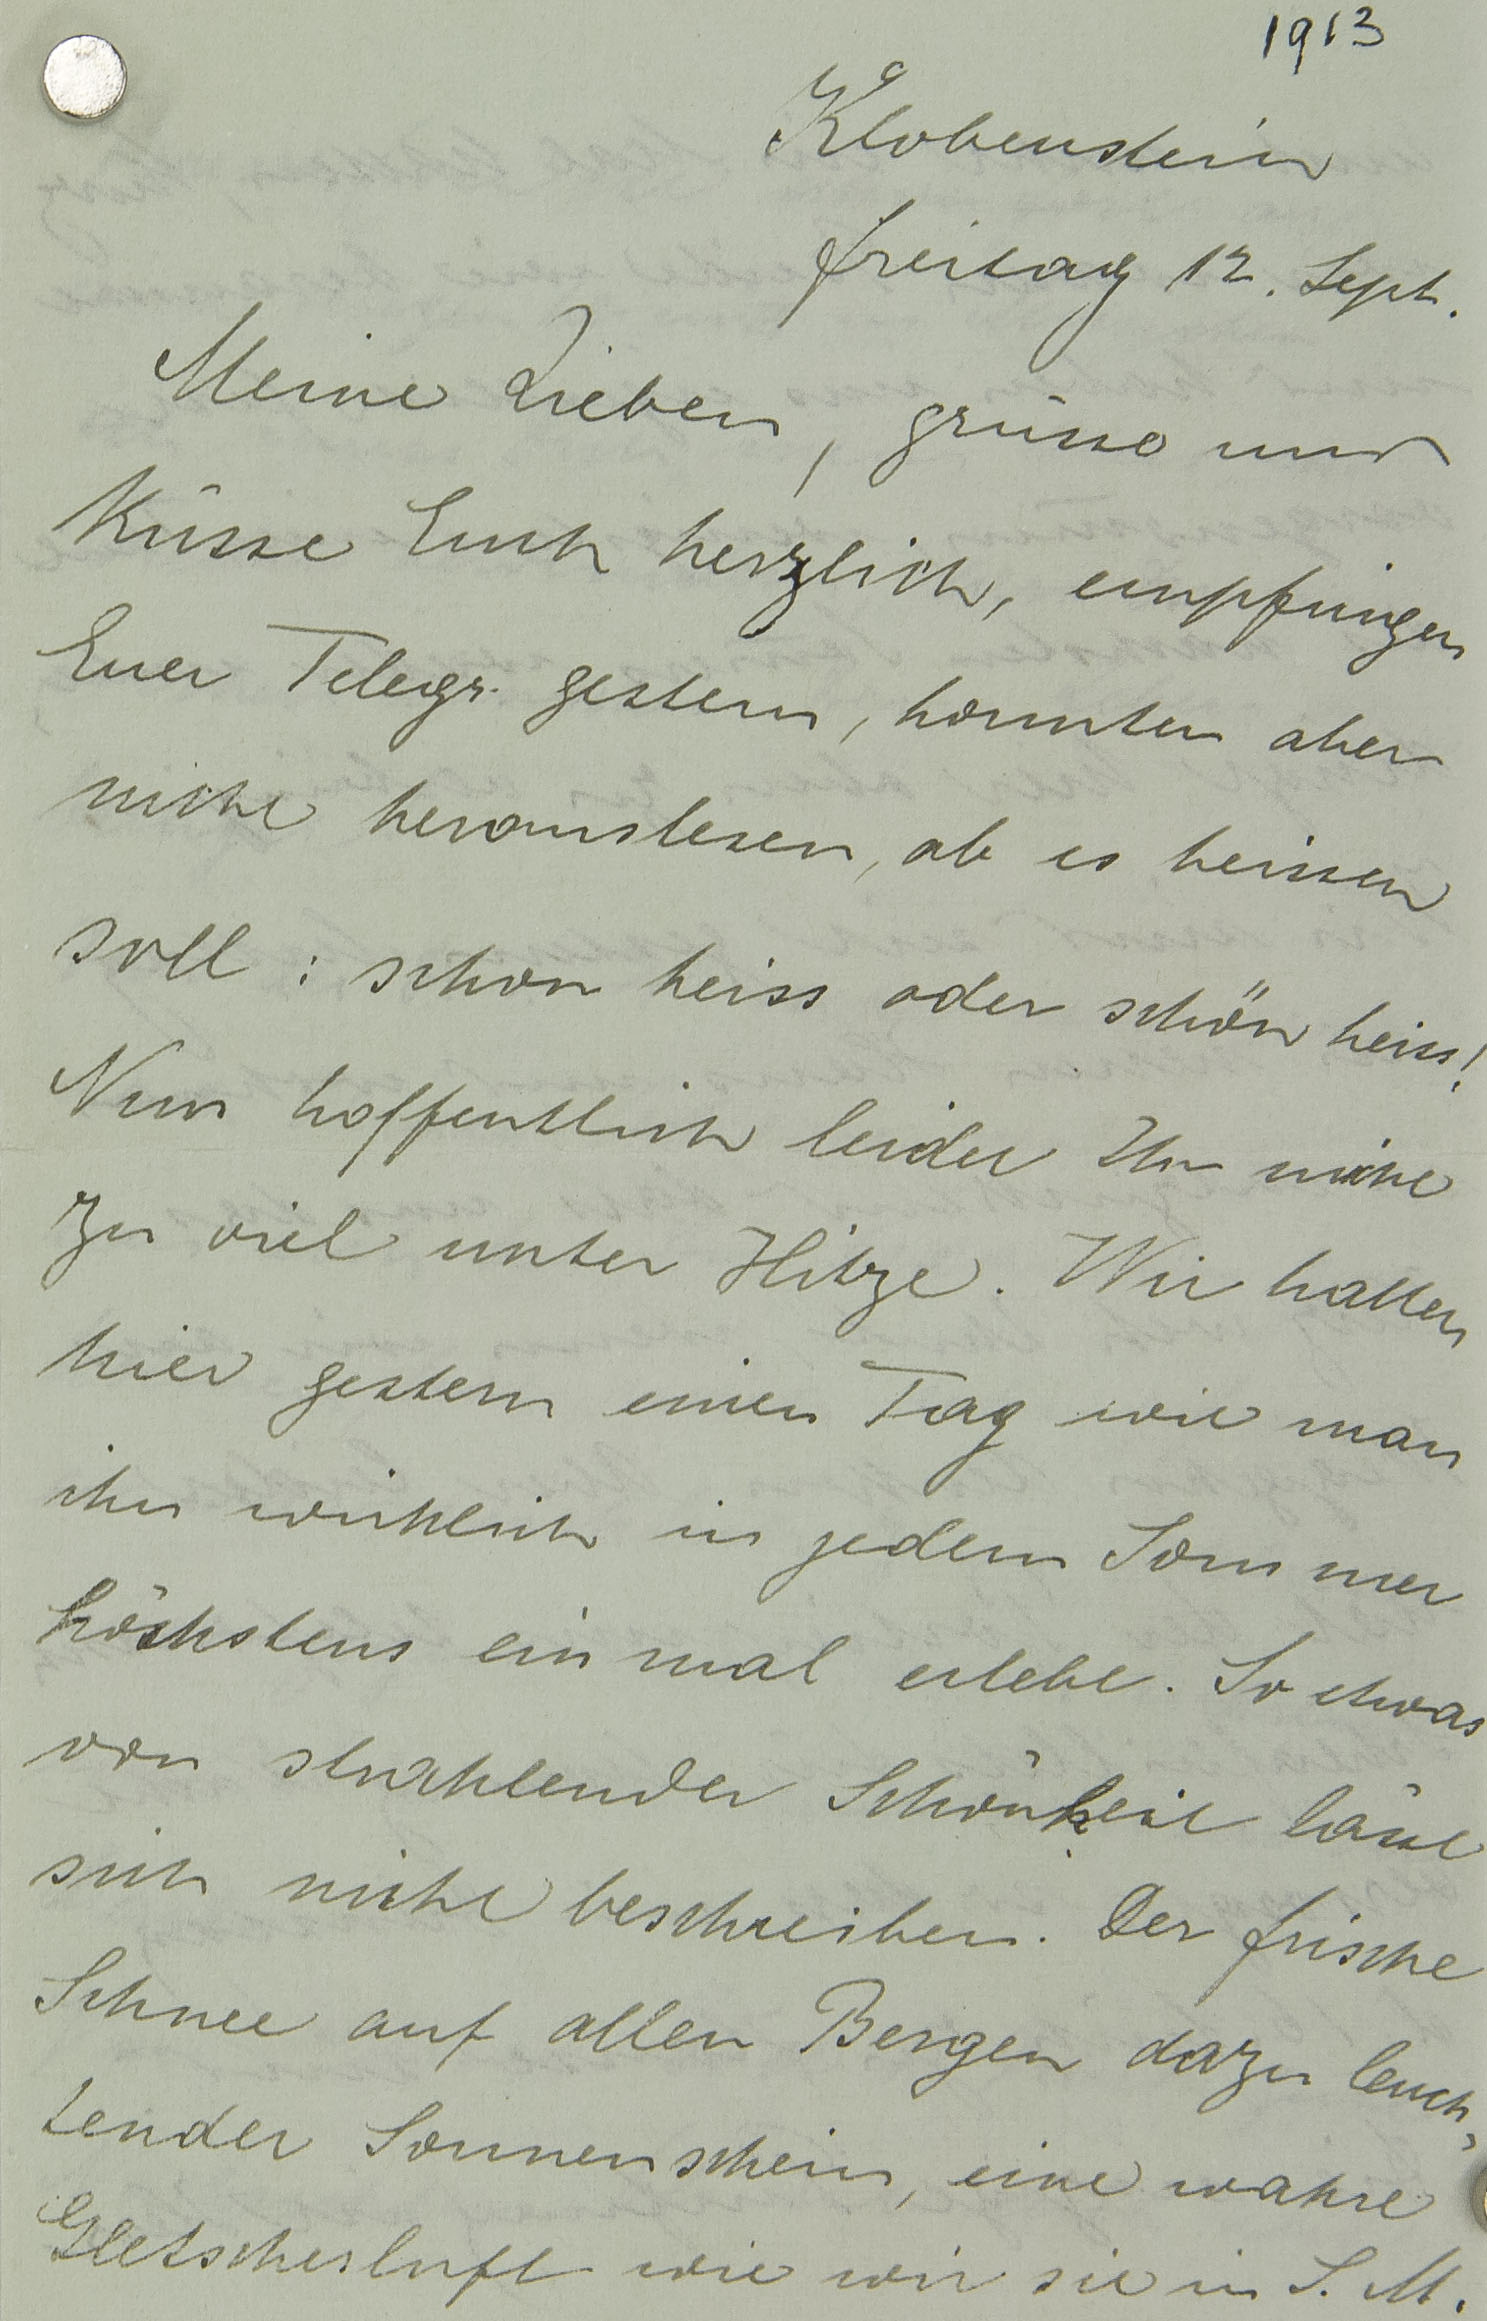 1913
Klobenstein
Freitag 12. Sept.
Meine Lieben, grüsse und
küsse Euch herzlich, empfingen
Euer Telegr. gestern, konnten aber
nicht herauslesen, ob es heissen
soll: schon heiss oder schön heiss!
Nun hoffentlich leidet Ihr nicht
zu viel unter Hitze. Wir hatten
hier gestern einen Tag wie man
ihn wirklich in jedem Sommer
höchstens einmal erlebt. So etwas
von strahlender Schönheit lässt
sich nicht beschreiben. Der frische
Schnee auf allen Bergen dazu leuch-
tender Sonnenschein, eine wahre
Gletscherluft wie wir sie in S. M.